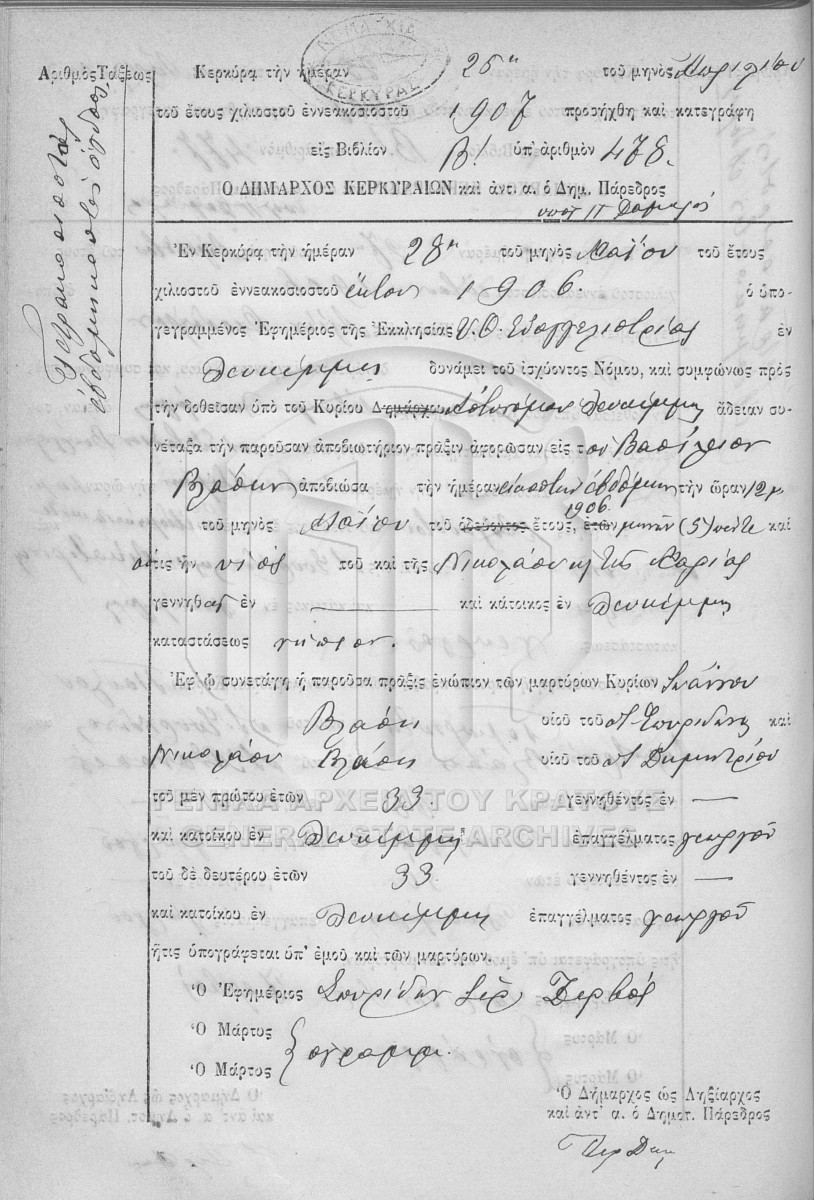 ΔΗΜΑΡΧΙΑ
ΚΕΡΚΥΡΑΣ
Ἀριθμὸς Τάξεως
Τετρακοσιοστὸς
ἑβδομηκοστὸς ὄγδοος
Κερκύρᾳ τὴν ἡμέραν 25η τοῦ μηνὸς Ἀπριλίου
τοῦ ἔτους χιλιοστοῦ ἐννεακοσιοστοῦ 1907 προσήχθη καὶ κατεγράφη
εἰς Βιβλίον Β! ὑπ' ἀριθμὸν 478.
Ο ΔΗΜΑΡΧΟΣ ΚΕΡΚΥΡΑΙΩΝ καὶ ἀντ. α. ὁ Δημ. Πάρεδρος
Ἐν Κερκύρᾳ τὴν ἡμέραν 28η τοῦ μηνὸς Μαΐου τοῦ ἔτους
χιλιοστοῦ ἐννεακοσιοστοῦ ἕκτου 1906. ὁ ὑπο-
γεγραμμένος Ἐφημέριος τῆς Ἐκκλησίας Υ.Θ. Εὐαγγελιστρίας ἐν
Λευκίμμῃ δυνάμει τοῦ ἰσχύοντος Νόμου, καὶ συμφώνως πρὸς
τὴν δοθεῖσαν ὑπὸ τοῦ Κυρίου Δημάρχου Ἀστυνόμου Λευκίμμης ἄδειαν συ-
νέταξα τὴν παροῦσαν ἀποβιωτήριον πρᾶξιν ἀφορῶσαν εἰς τὸν Βασίλειον
Βλάσην ἀποβιώσα τὴν ἡμέραν εἰκοστὴν ἑβδόμην τὴν ὥραν 12
1906
τοῦ μηνὸς Μαΐου τοῦ ὁδεύοντος ἔτους, ἐτῶν μηνῶν (5) πέντε καὶ
ὅστις ἦν υἱὸς τοῦ καὶ τῆς Νικολάου κ τῆς Μαρίας
γεννηθὰς ἐν — καὶ κάτοικος ἐν Λευκίμμῃ
καταστάσεως νήπιον.
Ἐφ' ᾧ συνετάγη ἡ παροῦσα πρᾶξις ἐνώπιον τῶν μαρτύρων Κυρίων Ἰωάννου
Βλάση υἱοῦ τοῦ Σπυρίδωνος καὶ
Νικολάου Βλάση υἱοῦ τοῦ Δημητρίου
τοῦ μὲν πρώτου ἐτῶν 33. γεννηθέντος ἐν —
ΓΕΝΙΚΑ ΑΡΧΕΙΑ ΤΟΥ ΚΡΑΤΟΥΣ
καὶ κατοίκου ἐν Λευκίμμῃ ἐπαγγέλματος γεωργοῦ
GENERAL STATE ARCHIVES
τοῦ δὲ δευτέρου ἐτῶν 33 γεννηθέντος ἐν —
καὶ κατοίκου ἐν Λευκίμμῃ ἐπαγγέλματος γεωργοῦ
ἥτις ὑπογράφεται ὑπ' ἐμοῦ καὶ τῶν μαρτύρων.
Ὁ Ἐφημέριος Σπυρίδων Ἱερ Ζερβός
Ὁ Μάρτυς
Ὁ Μάρτυς ἀγράμμ.
Ὁ Δήμαρχος ὡς Ληξίαρχος
καὶ ἀντ' α. ὁ Δημοτ. Πάρεδρος